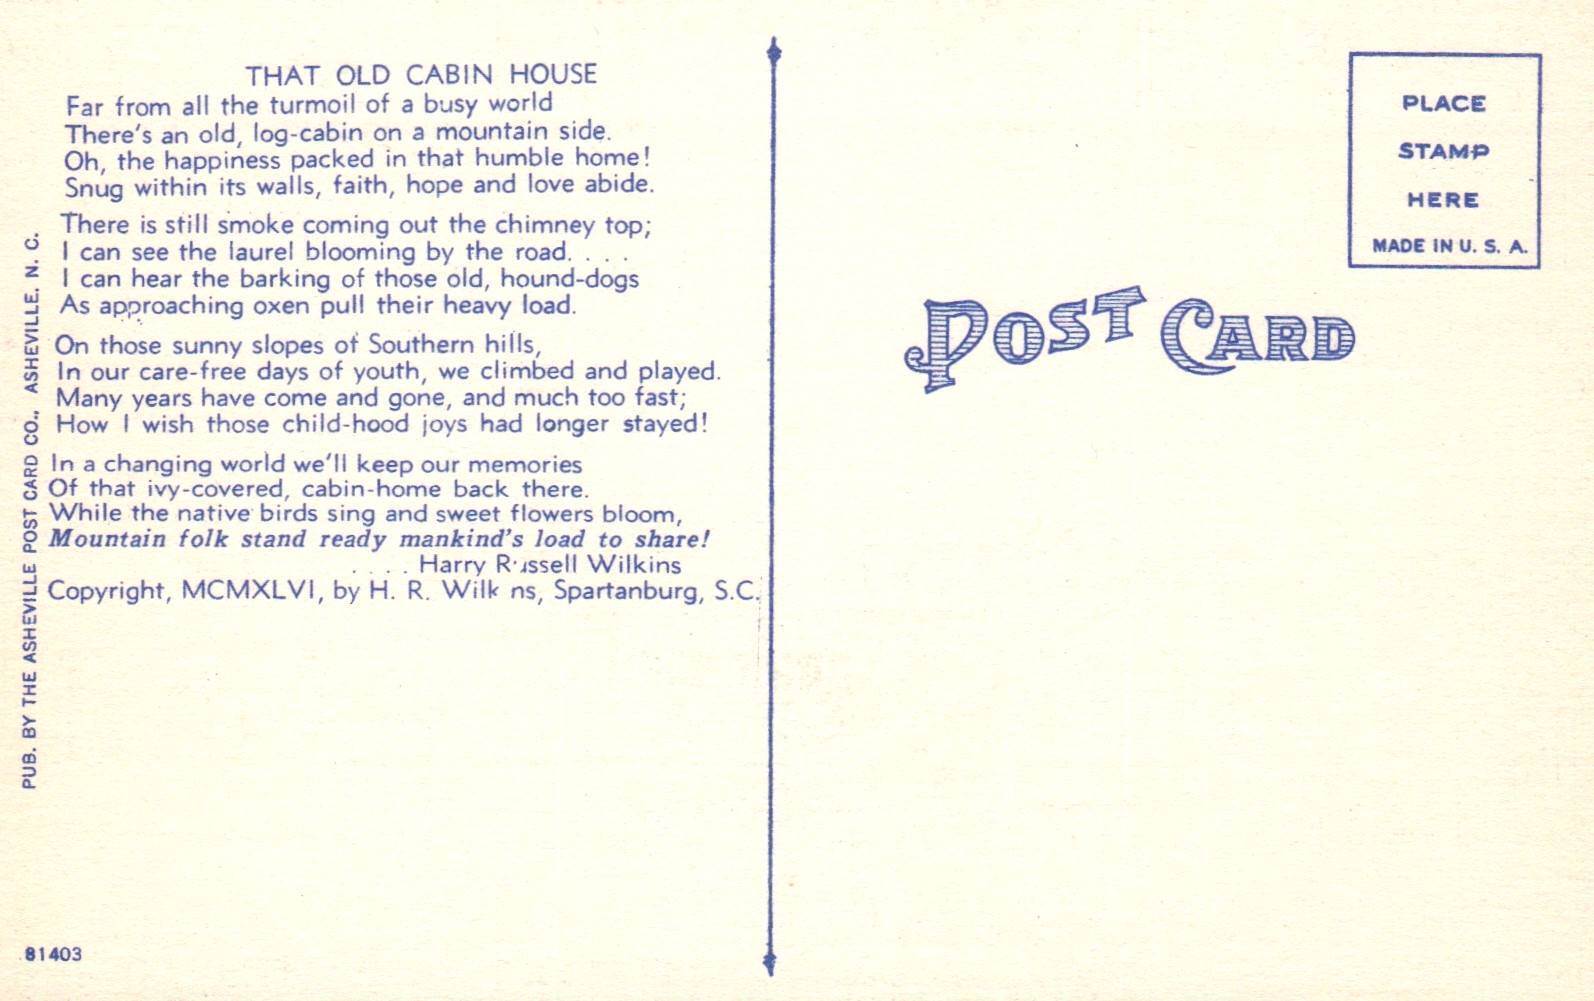 THAT OLD CABIN HOUSE
Far from all the turmoil of a busy world
There's an old, log-cabin on a mountain side.
Oh, the happiness packed in that humble home!
Snug within its walls, faith, hope and love abide.
There is still smoke coming out the chimney top;
I can see the laurel blooming by the road. . . .
I can hear the barking of those old, hound-dogs
As approaching oxen pull their heavy load.
On those sunny slopes of Southern hills,
In our care-free days of youth, we climbed and played.
Many years have come and gone, and much too fast;
How I wish those child-hood joys had longer stayed!
In a changing world we'll keep our memories
Of that ivy-covered, cabin-home back there.
While the native birds sing and sweet flowers bloom,
Mountain folk stand ready mankind's load to share!
. . . . Harry Russell Wilkins
Copyright, MCMXLVI, by H. R. Wilk ns, Spartanburg, S.C.
PUB. BY THE ASHEVILLE POST CARD CO., ASHEVILLE. N. C.
81403
PLACE
STAMP
HERE
MADE IN U. S. A.
POST CARD